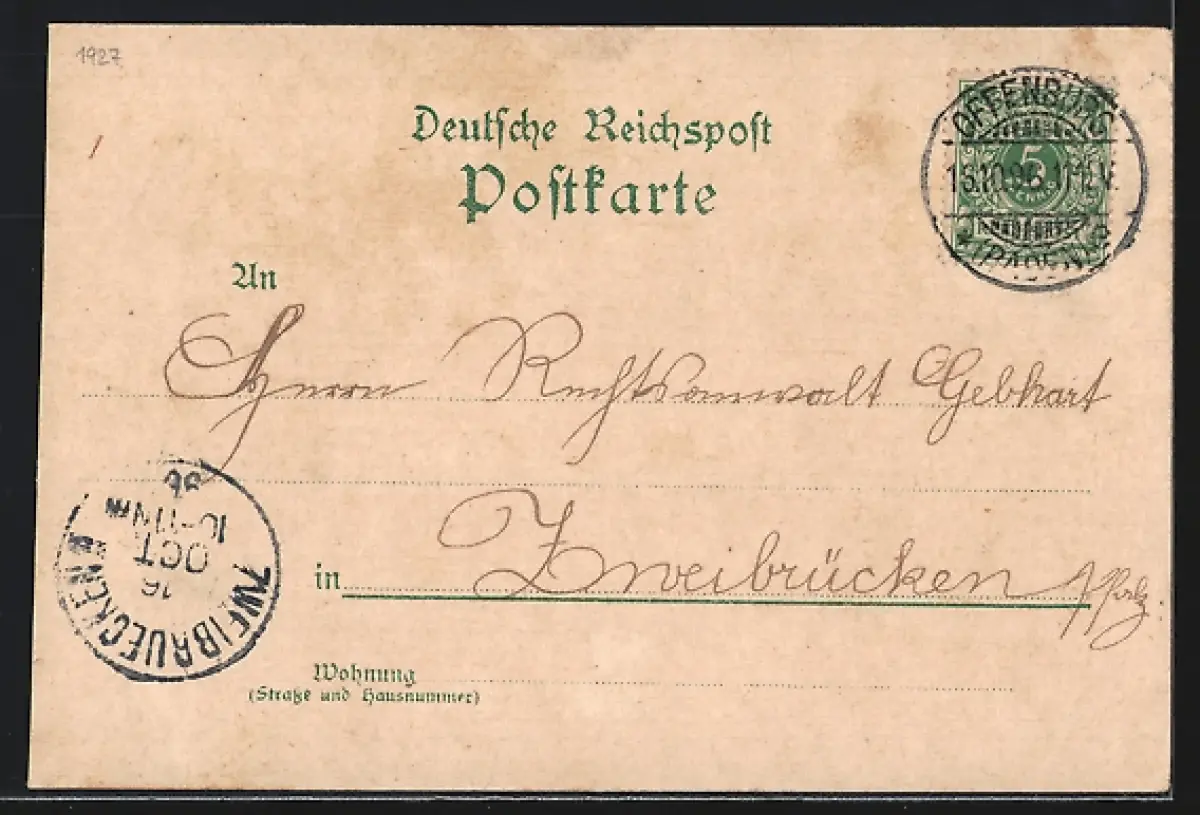 1927
Deutsche Reichspost
Postkarte
OFFENBURG
5
* (BADEN)
An
Herrn Rechtsanwalt Gebhart
in Zweibrücken Pfalz
ZWEIBRUECKEN
16
OCT
10-11 Nm
96
Wohnung
(Straße und Hausnummer)